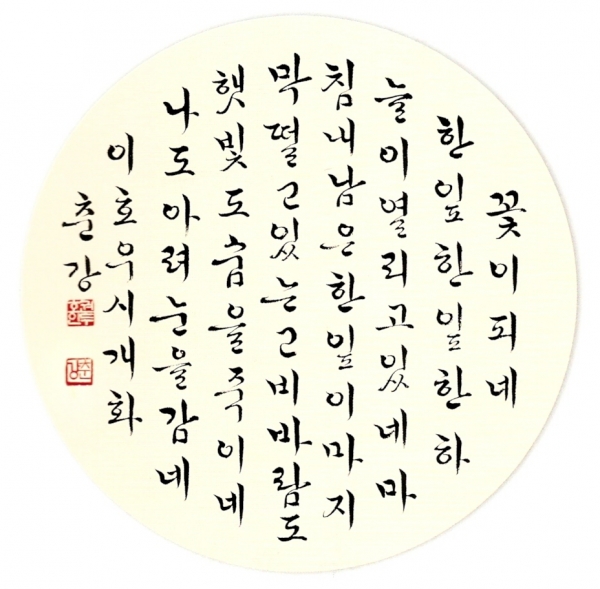 꽃이피네
한잎한잎한하
늘이열리고있네마
침내남은한잎이마지
막떨고있는고비바람도
햇빛도숨을죽이네
나도아려눈을감네
이호우시개화
춘강